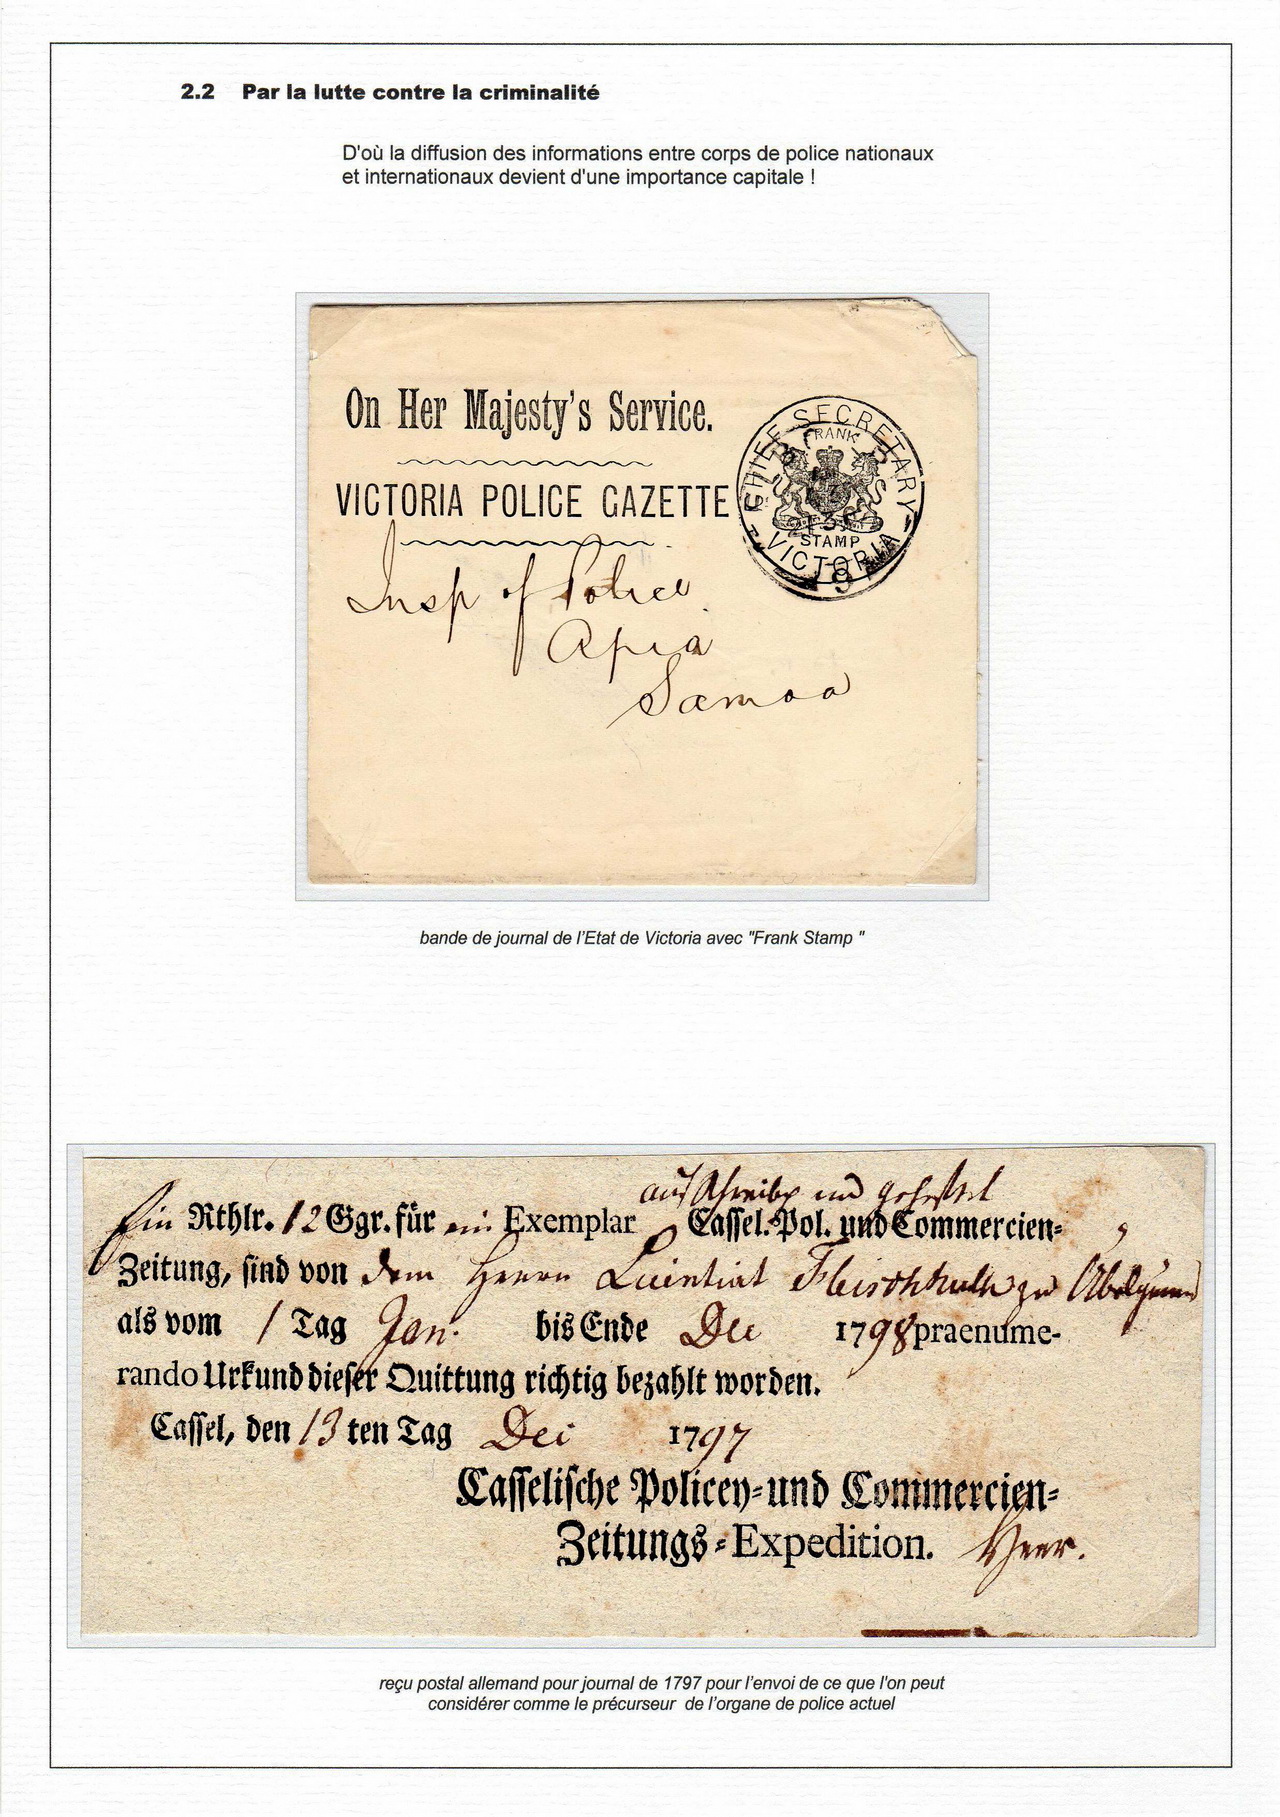 2.2 Par la lutte contre la criminalité
D'où la diffusion des informations entre corps de police nationaux
et internationaux devient d'une importance capitale !
On Her Majesty's Service.
VICTORIA POLICE GAZETTE
CHIEF SECRETARY
FRANK
STAMP
VICTORIA
Insp of Police
Apia
Samoa
bande de journal de l'Etat de Victoria avec "Frank Stamp "
Ein Rthlr. 12 Ggr. für ein Exemplar Cassel. Pol. und Commercien-
Zeitung, sind von dem Herrn zu
als vom 1 Tag Jan. bis Ende Dec 1798 praenume-
rando Urkund dieser Quittung richtig bezahlt worden.
Cassel, den 13 ten Tag Dec 1797
Casselische Policey- und Commercien-
Zeitungs-Expedition.
reçu postal allemand pour journal de 1797 pour l'envoi de ce que l'on peut
considérer comme le précurseur de l'organe de police actuel